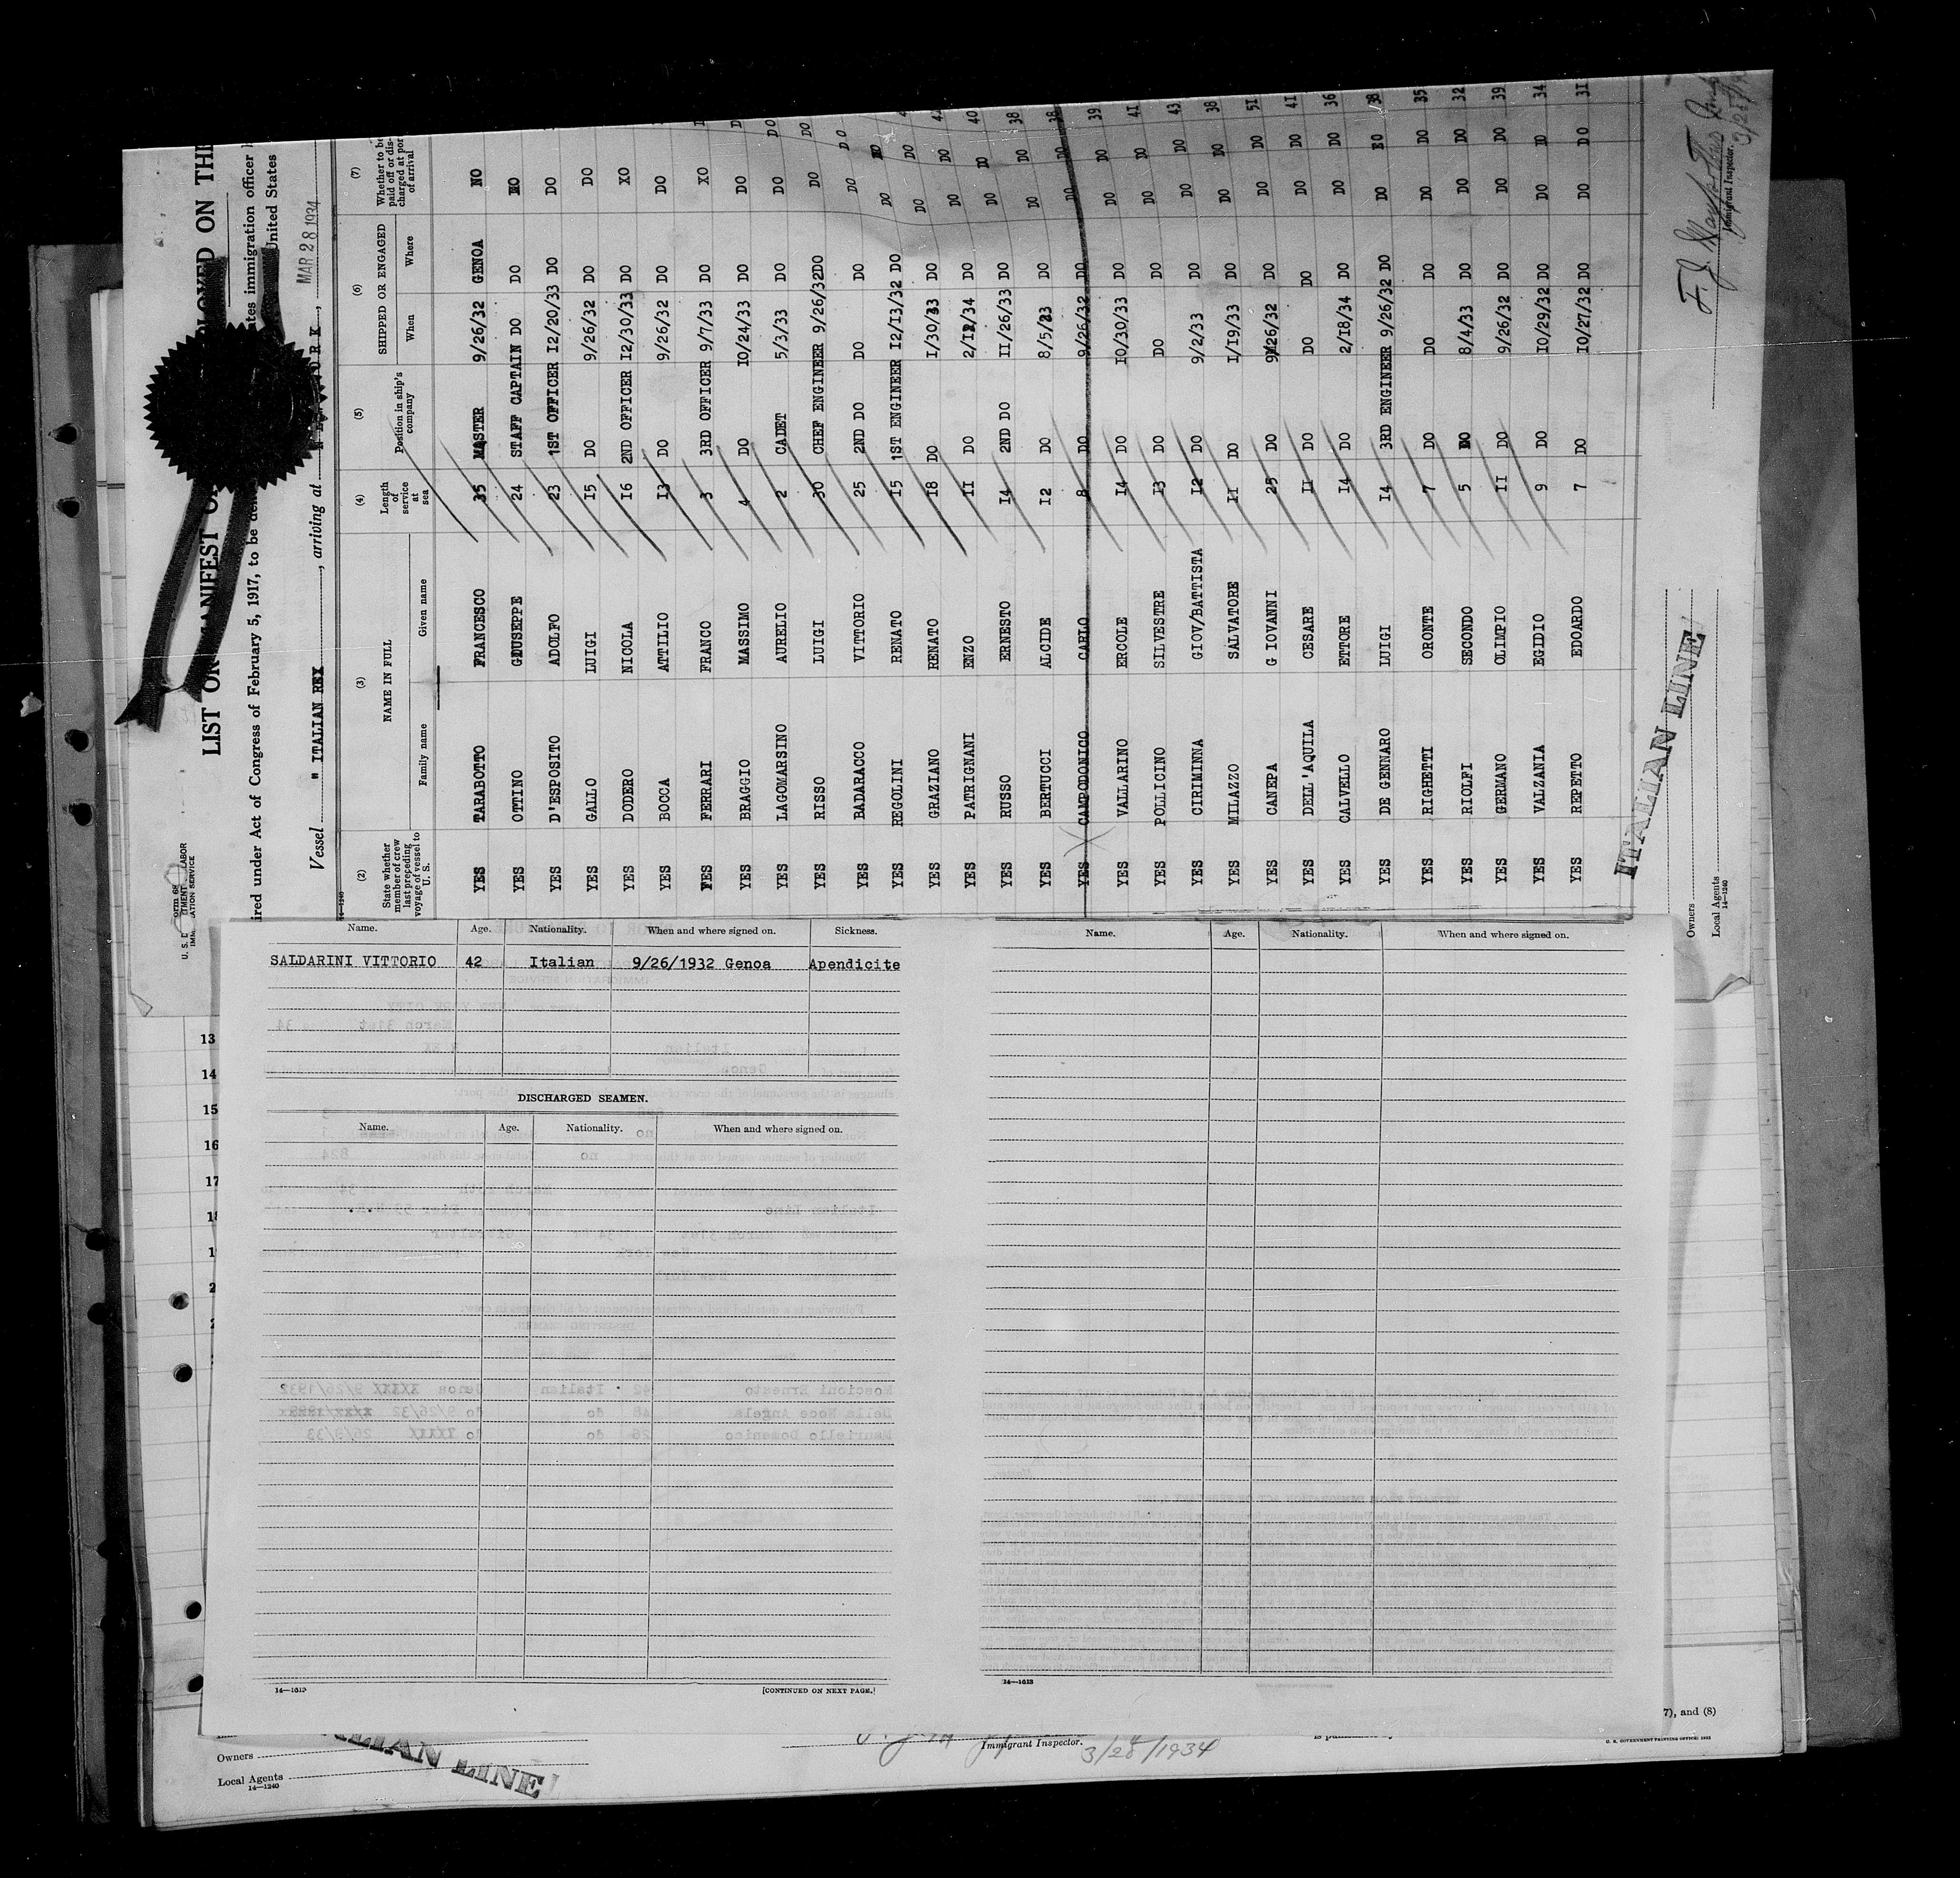 LIST OR MANIFEST OF
LOYED ON THE
ired under Act of Congress of February 5, 1917, to be de
ates immigration officer
United States
Vessel " ITALIAN REX , arriving at YORK , MAR 28 1934
U. S. D TMENT LABOR
ATION SERVICE
(2) (3) (4) (5) (6) (7)
State whether member of crew last preceding voyage of vessel to U. S.
NAME IN FULL
Family name Given name
Length of service at sea
Position in ship's company
SHIPPED OR ENGAGED
When Where
Whether to be paid off or dis-charged at port of arrival
YES TARABOTTO FRANCESCO 35 MASTER 9/26/32 GENOA NO
YES OTTINO GIUSEPPE 24 STAFF CAPTAIN DO DO NO
YES D'ESPOSITO ADOLFO 23 1ST OFFICER 12/20/33 DO DO
YES GALLO LUIGI 15 DO 9/26/32 DO DO
YES DODERO NICOLA 16 2ND OFFICER 12/30/33 DO XO
YES BOCCA ATTILIO 13 DO 9/26/32 DO DO
YES FERRARI FRANCO 3 3RD OFFICER 9/7/33 DO XO
YES BRAGGIO MASSIMO 4 DO 10/24/33 DO DO DO
YES LAGOMARSINO AURELIO 2 CADET 5/3/33 DO DO DO
YES RISSO LUIGI 30 CHEF ENGINEER 9/26/32DO DO DO
YES BADARACCO VITTORIO 25 2ND DO DO DO DO DO
YES REGOLINI RENATO 15 1ST ENGINEER 12/13/32 DO DO
YES GRAZIANO RENATO 18 DO 1/30/33 DO DO DO
YES PATRIGNANI ENZO 11 DO 2/12/34 DO DO DO 40
YES RUSSO ERNESTO 14 2ND DO 11/26/33 DO DO DO 38
YES BERTUCCI ALCIDE 12 DO 8/5/33 DO DO DO 38
YES CAMPODONICO CARLO 8 DO 9/26/32 DO DO DO 39
YES VALLARINO ERCOLE 14 DO 10/30/33 DO DO DO 41
YES POLLICINO SILVESTRE 13 DO DO DO DO DO 43
YES CIRIMINNA GIOV/BATTISTA 12 DO 9/2/33 DO DO DO 38
YES MILAZZO SALVATORE 11 DO 1/19/33 DO DO DO 51
YES CANEPA G IOVANNI 25 DO 9/26/32 DO DO DO
YES DELL'AQUILA CESARE 11 DO DO DO DO DO 41
YES CALVELLO ETTORE 14 DO 2/18/34 DO DO DO 36
YES DE GENNARO LUIGI 14 3RD ENGINEER 9/26/32 DO DO 38
YES RIGHETTI ORONTE 7 DO DO DO DO DO 35
YES RIOLFI SECONDO 5 DO 8/4/33 DO DO DO 32
YES GERMANO OLIMPIO 11 DO 9/26/32 DO DO DO 39
YES VALZANIA EGIDIO 9 DO 10/29/32 DO DO 34
YES REPETTO EDOARDO 7 DO 10/27/32 DO DO DO 31
ITALIAN LINE
Owners
Local Agents
14—1240
Immigrant Inspector.
Name. Age. Nationality. When and where signed on. Sickness.
SALDARINI VITTORIO 42 Italian 9/26/1932 Genoa Apendicite
DISCHARGED SEAMEN.
Name. Age. Nationality. When and where signed on.
14—1613
[CONTINUED ON NEXT PAGE.]
Name. Age. Nationality. When and where signed on.
14—1613
13
14
15
16
17
7), and (8)
U. S. GOVERNMENT PRINTING OFFICE: 1932
Owners
Local Agents
14—1240
LIAN LINE
Immigrant Inspector. 3/28/1934